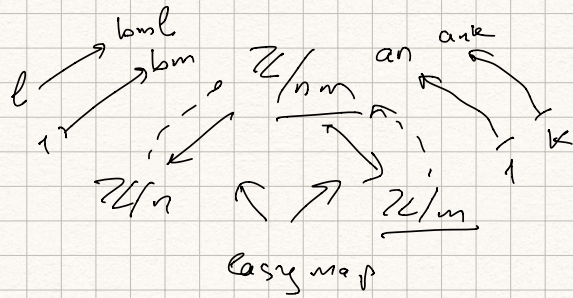 bml
bm
ℤ/nm
an
ank
l
1
1
k
ℤ/n
ℤ/m
easy map